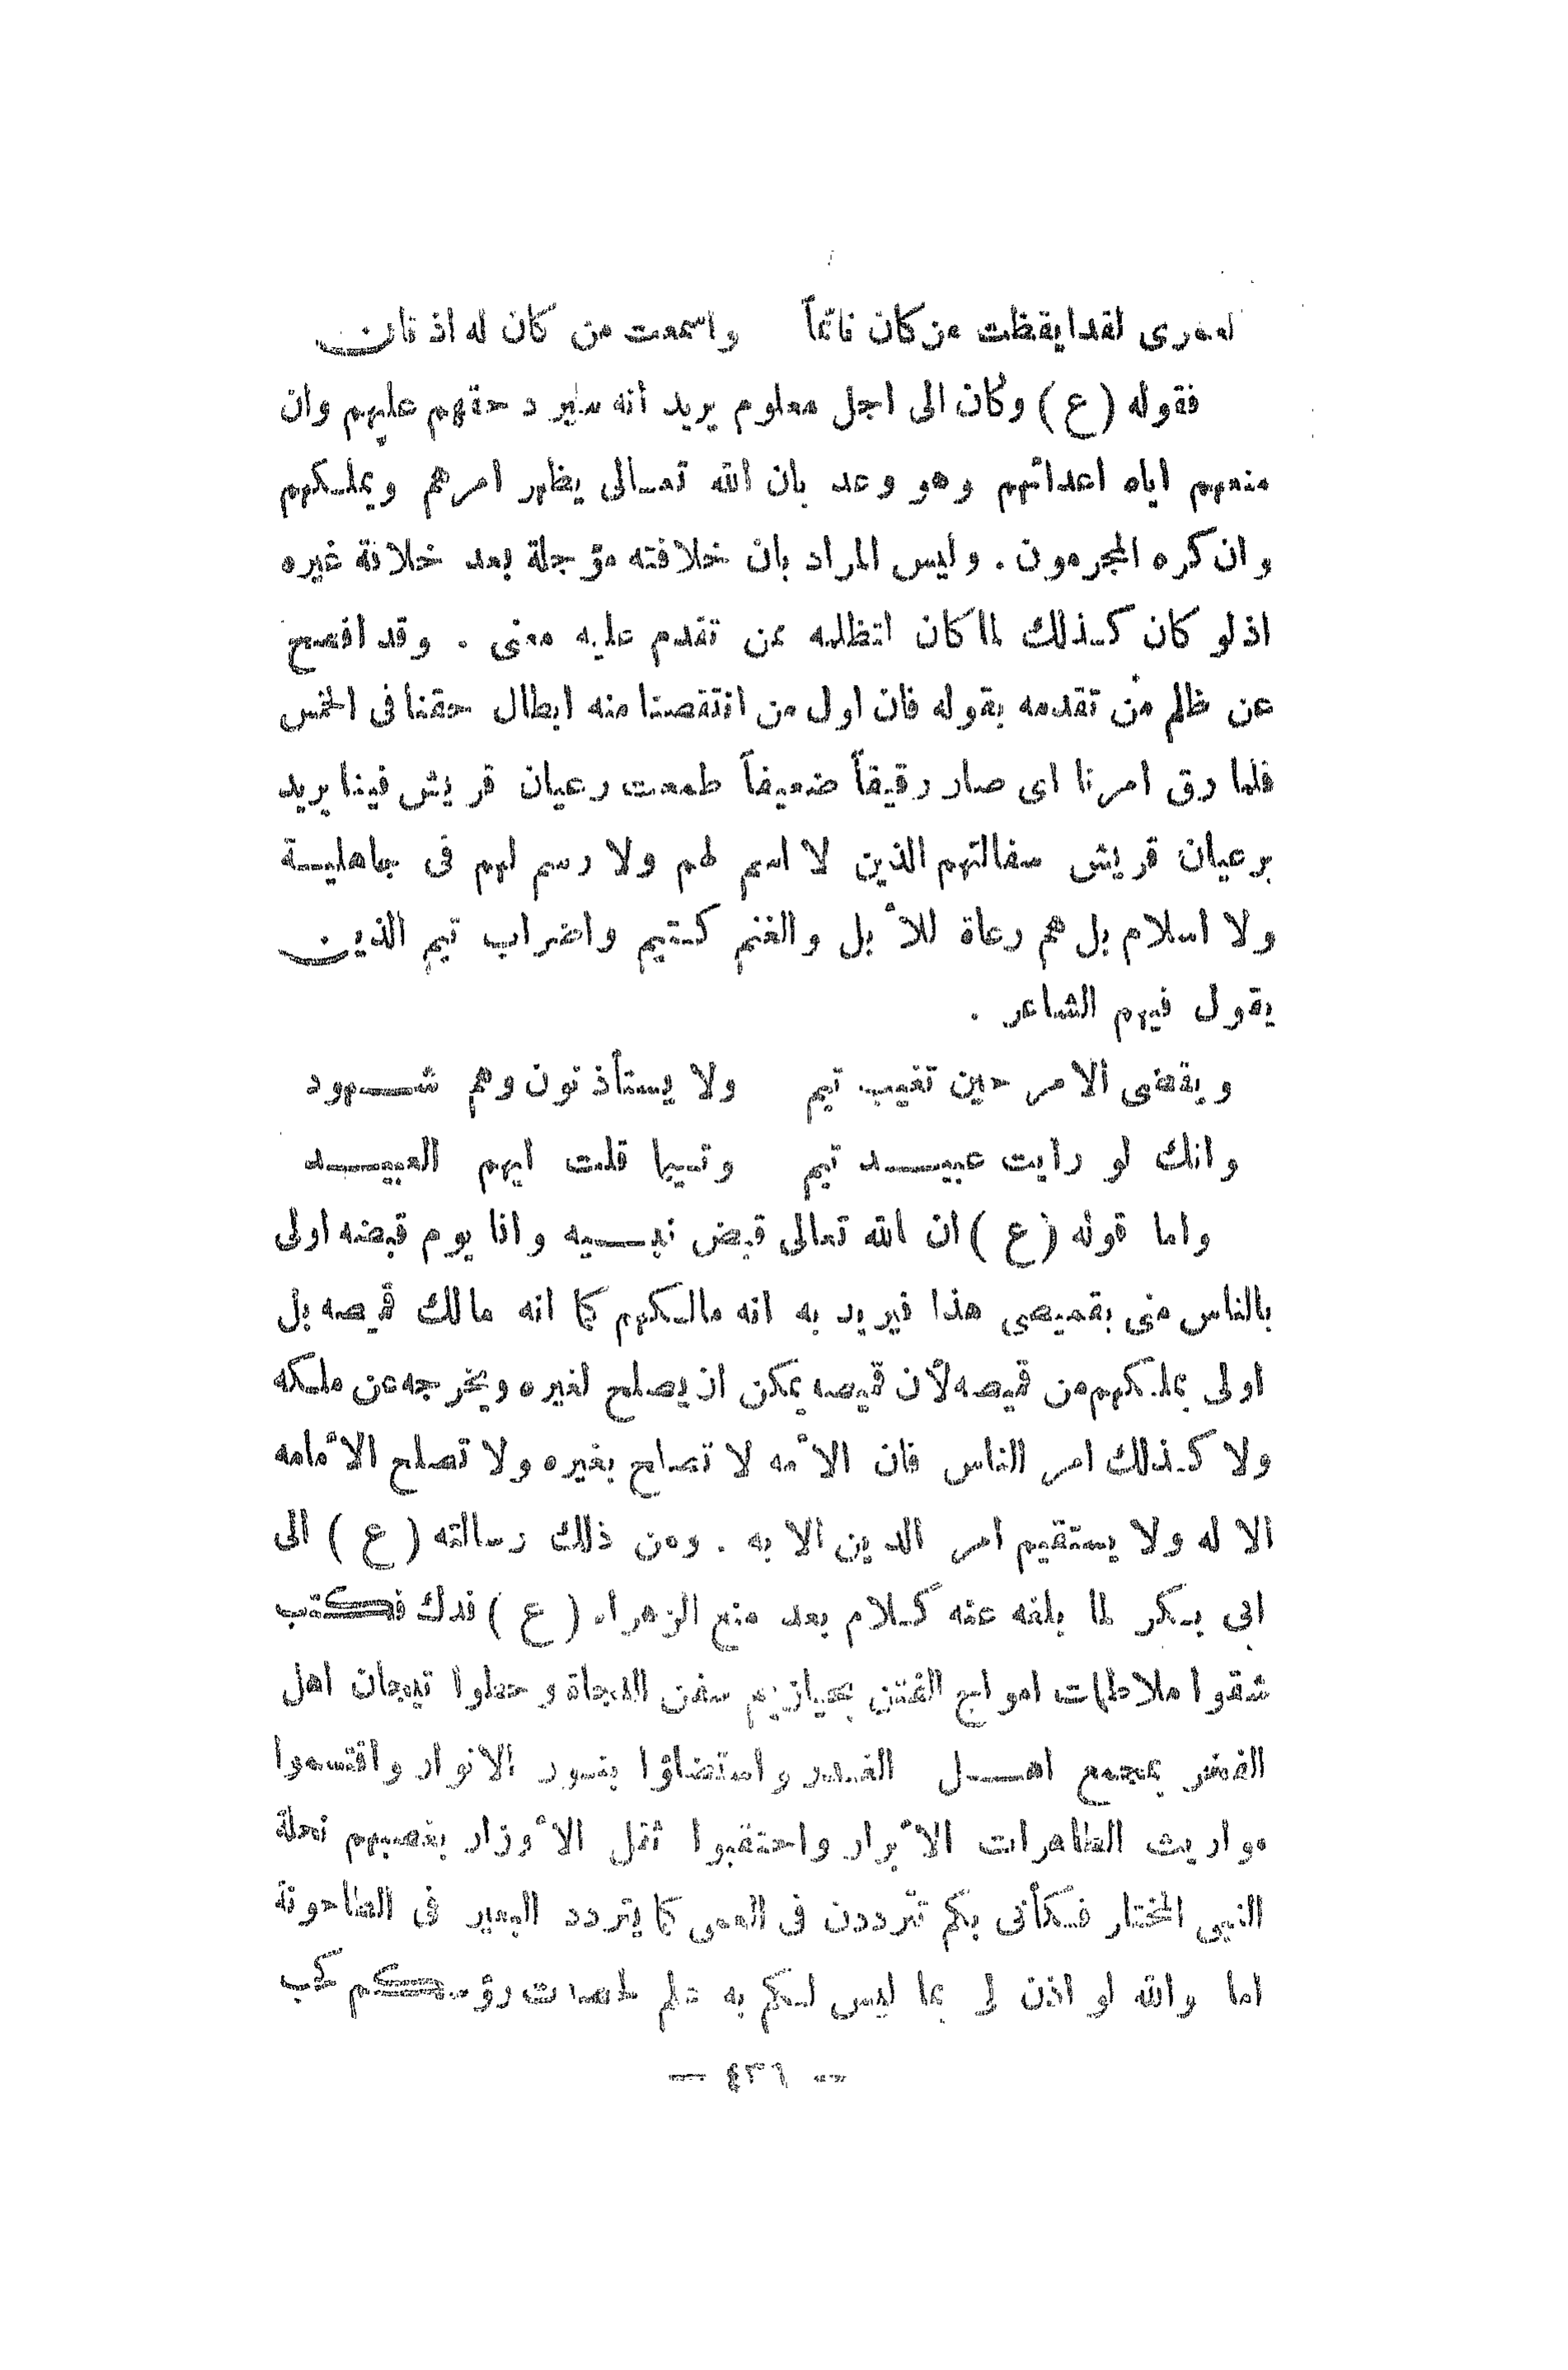 لعمرى لقد ايقظت من كان نائماً واسمعت من كان له اذ نان
فقوله ( ع ) وكان الى اجل معلوم يريد أنه سير د حقهم عليهم وان
منعهم اياه اعدائهم وهو وعد بان الله تعالى يظهر امرهم ويملكهم
وان كره المجرمون . وليس المراد بان خلافته مؤجلة بعد خلافة غيره
اذ لو كان كذلك لما كان لتظلمه ممن تقدم عليه معنى . وقد افصح
عن ظلم من تقدمه بقوله فان اول من انتقصنا منه ابطال حقنا فى الخمس
فلما رق امرنا اى صار رقيقاً ضعيفاً طمعت رعيان قريش فينا يريد
برعيان قريش سفالتهم الذين لا اسم لهم ولا رسم لهم فى جاهلية
ولا اسلام بل هم رعاة للأبل والغنم كتيم واضراب تيم الذين
يقول فيهم الشاعر .
ويقضى الامر حين تغيب تيم ولا يستأذنون وهم شهود
وانك لو رايت عبيد تيم وتيما قلت ايهم العبيد
واما قوله ( ع ) ان الله تعالى قبض نبيه وانا يوم قبضه اولى
بالناس منى بقميصى هذا فيريد به انه مالكهم كما انه مالك قميصه بل
اولى بملكهم من قميصه لأن قميصه يمكن ان يصلح لغيره ويخرجه عن ملكه
ولا كذلك امر الناس فان الأمه لا تصلح بغيره ولا تصلح الأمامه
الا له ولا يستقيم امر الدين الا به . ومن ذلك رسالته ( ع ) الى
ابى بكر لما بلغه عنه كلام بعد منع الزهراء ( ع ) فدك فكتب
شقوا ملاطمات امواج الفتن بحيازيم سفن النجاة وحطوا تيجان اهل
الفخر بجميع اهل الغدر واستضاؤا بنور الانوار واقتسموا
مواريث الطاهرات الأبرار واحتقبوا ثقل الأوزار بغصبهم نحلة
النبى المختار فكأنى بكم تترددن فى العمى كما يتردد البعير فى الطاحونة
اما والله لو اذن لى بما ليس لكم به علم لحصدت رؤسكم كحب
— ٤٣٦ —